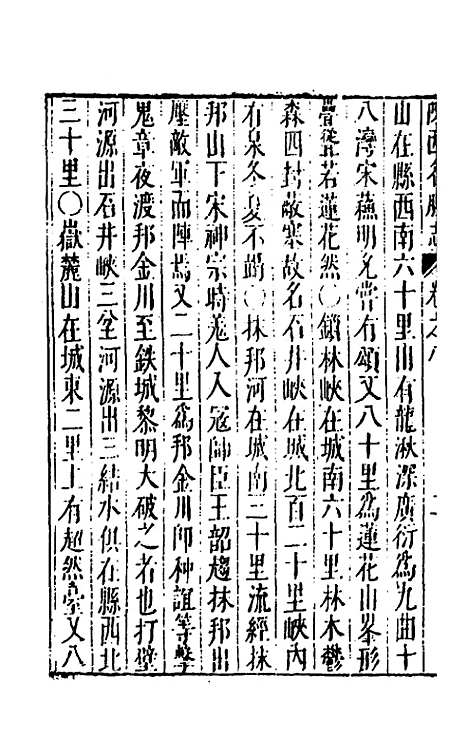 陝西名勝志 卷之八 二
山在縣西南六十里山有龍湫深廣衍為九曲十
八灣宋蘇明允嘗有頌又八十里為蓮花山峯形
疊聳若蓮花然○鎖林峽在城南六十里林木鬱
森四封故塞故名石井峽在城北百二十里峽內
有泉冬夏不竭○抹邦河在城南三十里流經抹
邦山下宋神宗時羗人入寇帥臣王韶趨抹邦出
壓敵軍而陣焉又二十里為邦金川卽种誼等擊
鬼章夜渡邦金川至鉄城黎明大破之者也打壁
河源出石井峽三岔河源出三結水俱在縣西北
三十里○嶽麓山在城東二里上有超然臺又八